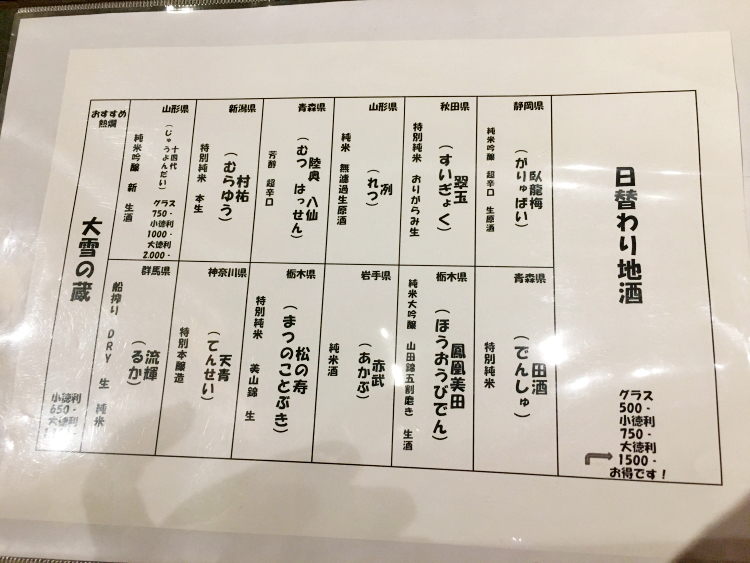 日替わり地酒
グラス
500-
小徳利
750-
大徳利
1500-
お得です!
静岡県
臥龍梅
(がりゅばい)
純米吟醸 超辛口 生原酒
秋田県
翠玉
(すいぎょく)
特別純米 おりがらみ生
山形県
冽
(れつ)
純米 無濾過生原酒
青森県
陸奥 八仙
(むつ はっせん)
芳醇 超辛口
新潟県
村祐
(むらゆう)
特別純米 本生
山形県
十四代
(じゅうよんだい)
純米吟醸 新 生酒
グラス
750-
小徳利
1000-
大徳利
2.000-
青森県
田酒
(でんしゅ)
特別純米
栃木県
鳳凰美田
(ほうおうびでん)
純米大吟醸 山田錦五割磨き 生酒
岩手県
赤武
(あかぶ)
純米酒
栃木県
松の寿
(まつのことぶき)
特別純米 美山錦 生
神奈川県
天青
(てんせい)
特別本醸造
群馬県
流輝
(るか)
船搾り DRY 生 純米
おすすめ
熱燗
大雪の蔵
小徳利
650-
大徳利